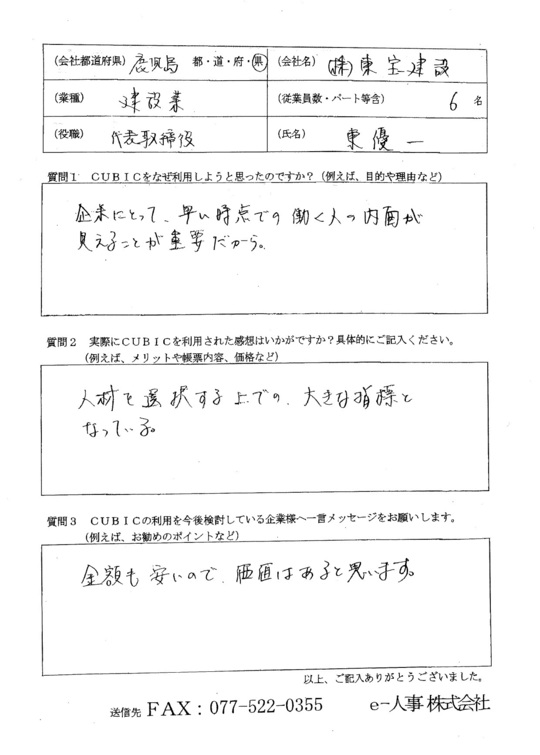 (会社都道府県) 鹿児島 都・道・府・県 (会社名) (株)東宝建設
(業種) 建設業 (従業員数・パート等含) 6 名
(役職) 代表取締役 (氏名) 東優一
質問1 CUBICをなぜ利用しようと思ったのですか?(例えば、目的や理由など)
企業にとって、早い時点での働く人の内面が
見えることが重要だから。
質問2 実際にCUBICを利用された感想はいかがですか?具体的にご記入ください。
(例えば、メリットや帳票内容、価格など)
人材を選択する上での、大きな指標と
なっている。
質問3 CUBICの利用を今後検討している企業様へ一言メッセージをお願いします。
(例えば、お勧めのポイントなど)
金額も安いので、価値はあると思います。
以上、ご記入ありがとうございました。
送信先 FAX:077-522-0355 e-人事株式会社